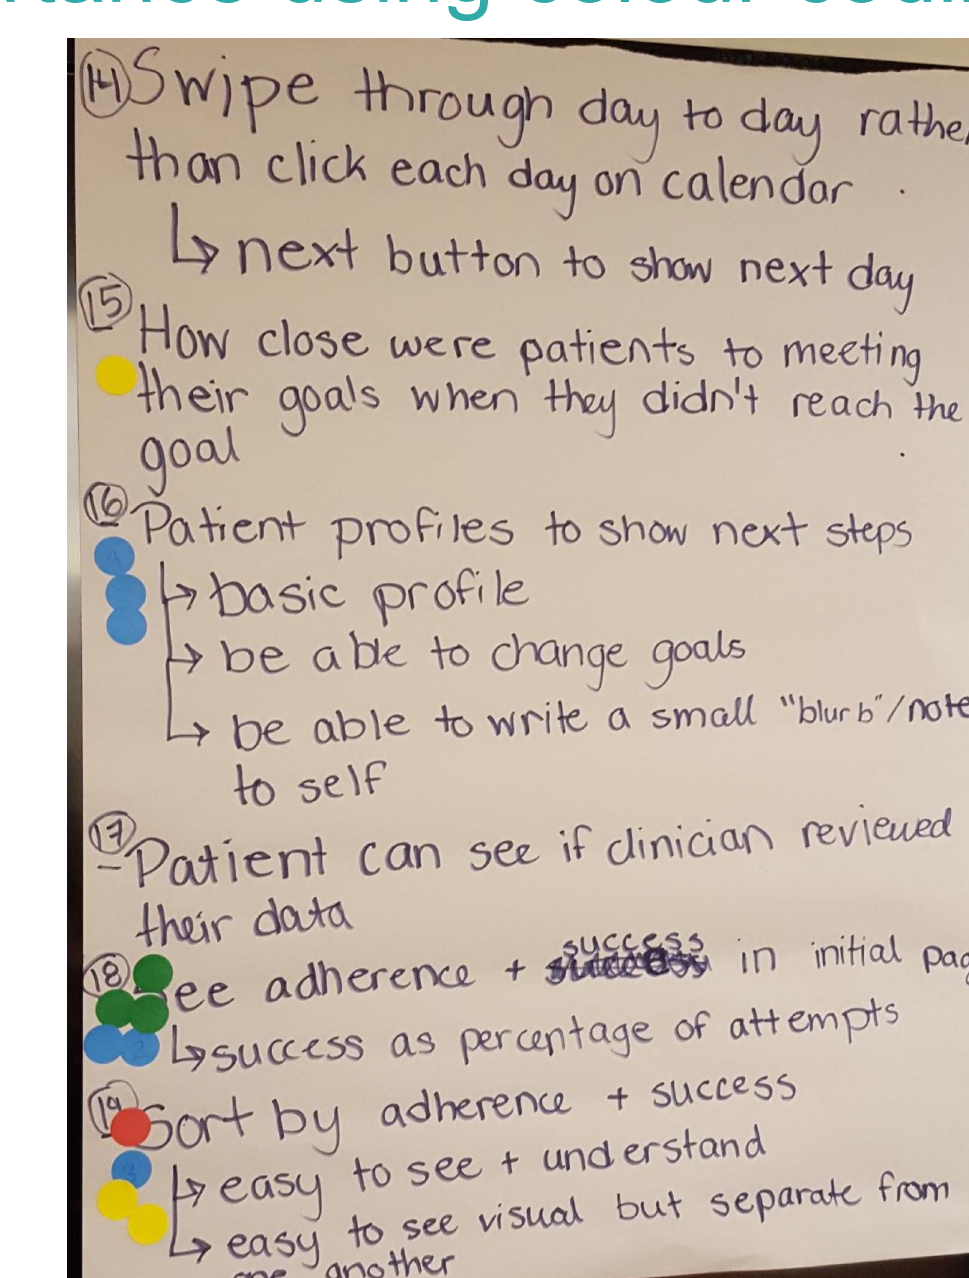 using colour
14 Swipe through day to day rathe
than click each day on calendar
↳ next button to show next day
15 How close were patients to meeting
their goals when they didn't reach the
goal
16 Patient profiles to show next steps
↳ basic profile
↳ be able to change goals
↳ be able to write a small "blurb"/note
to self
17 Patient can see if clinician reviewed
their data
success
18 ee adherence + in initial pag
↳ success as percentage of attempts
19 Sort by adherence + success
↳ easy to see + understand
↳ easy to see visual but separate from
one another